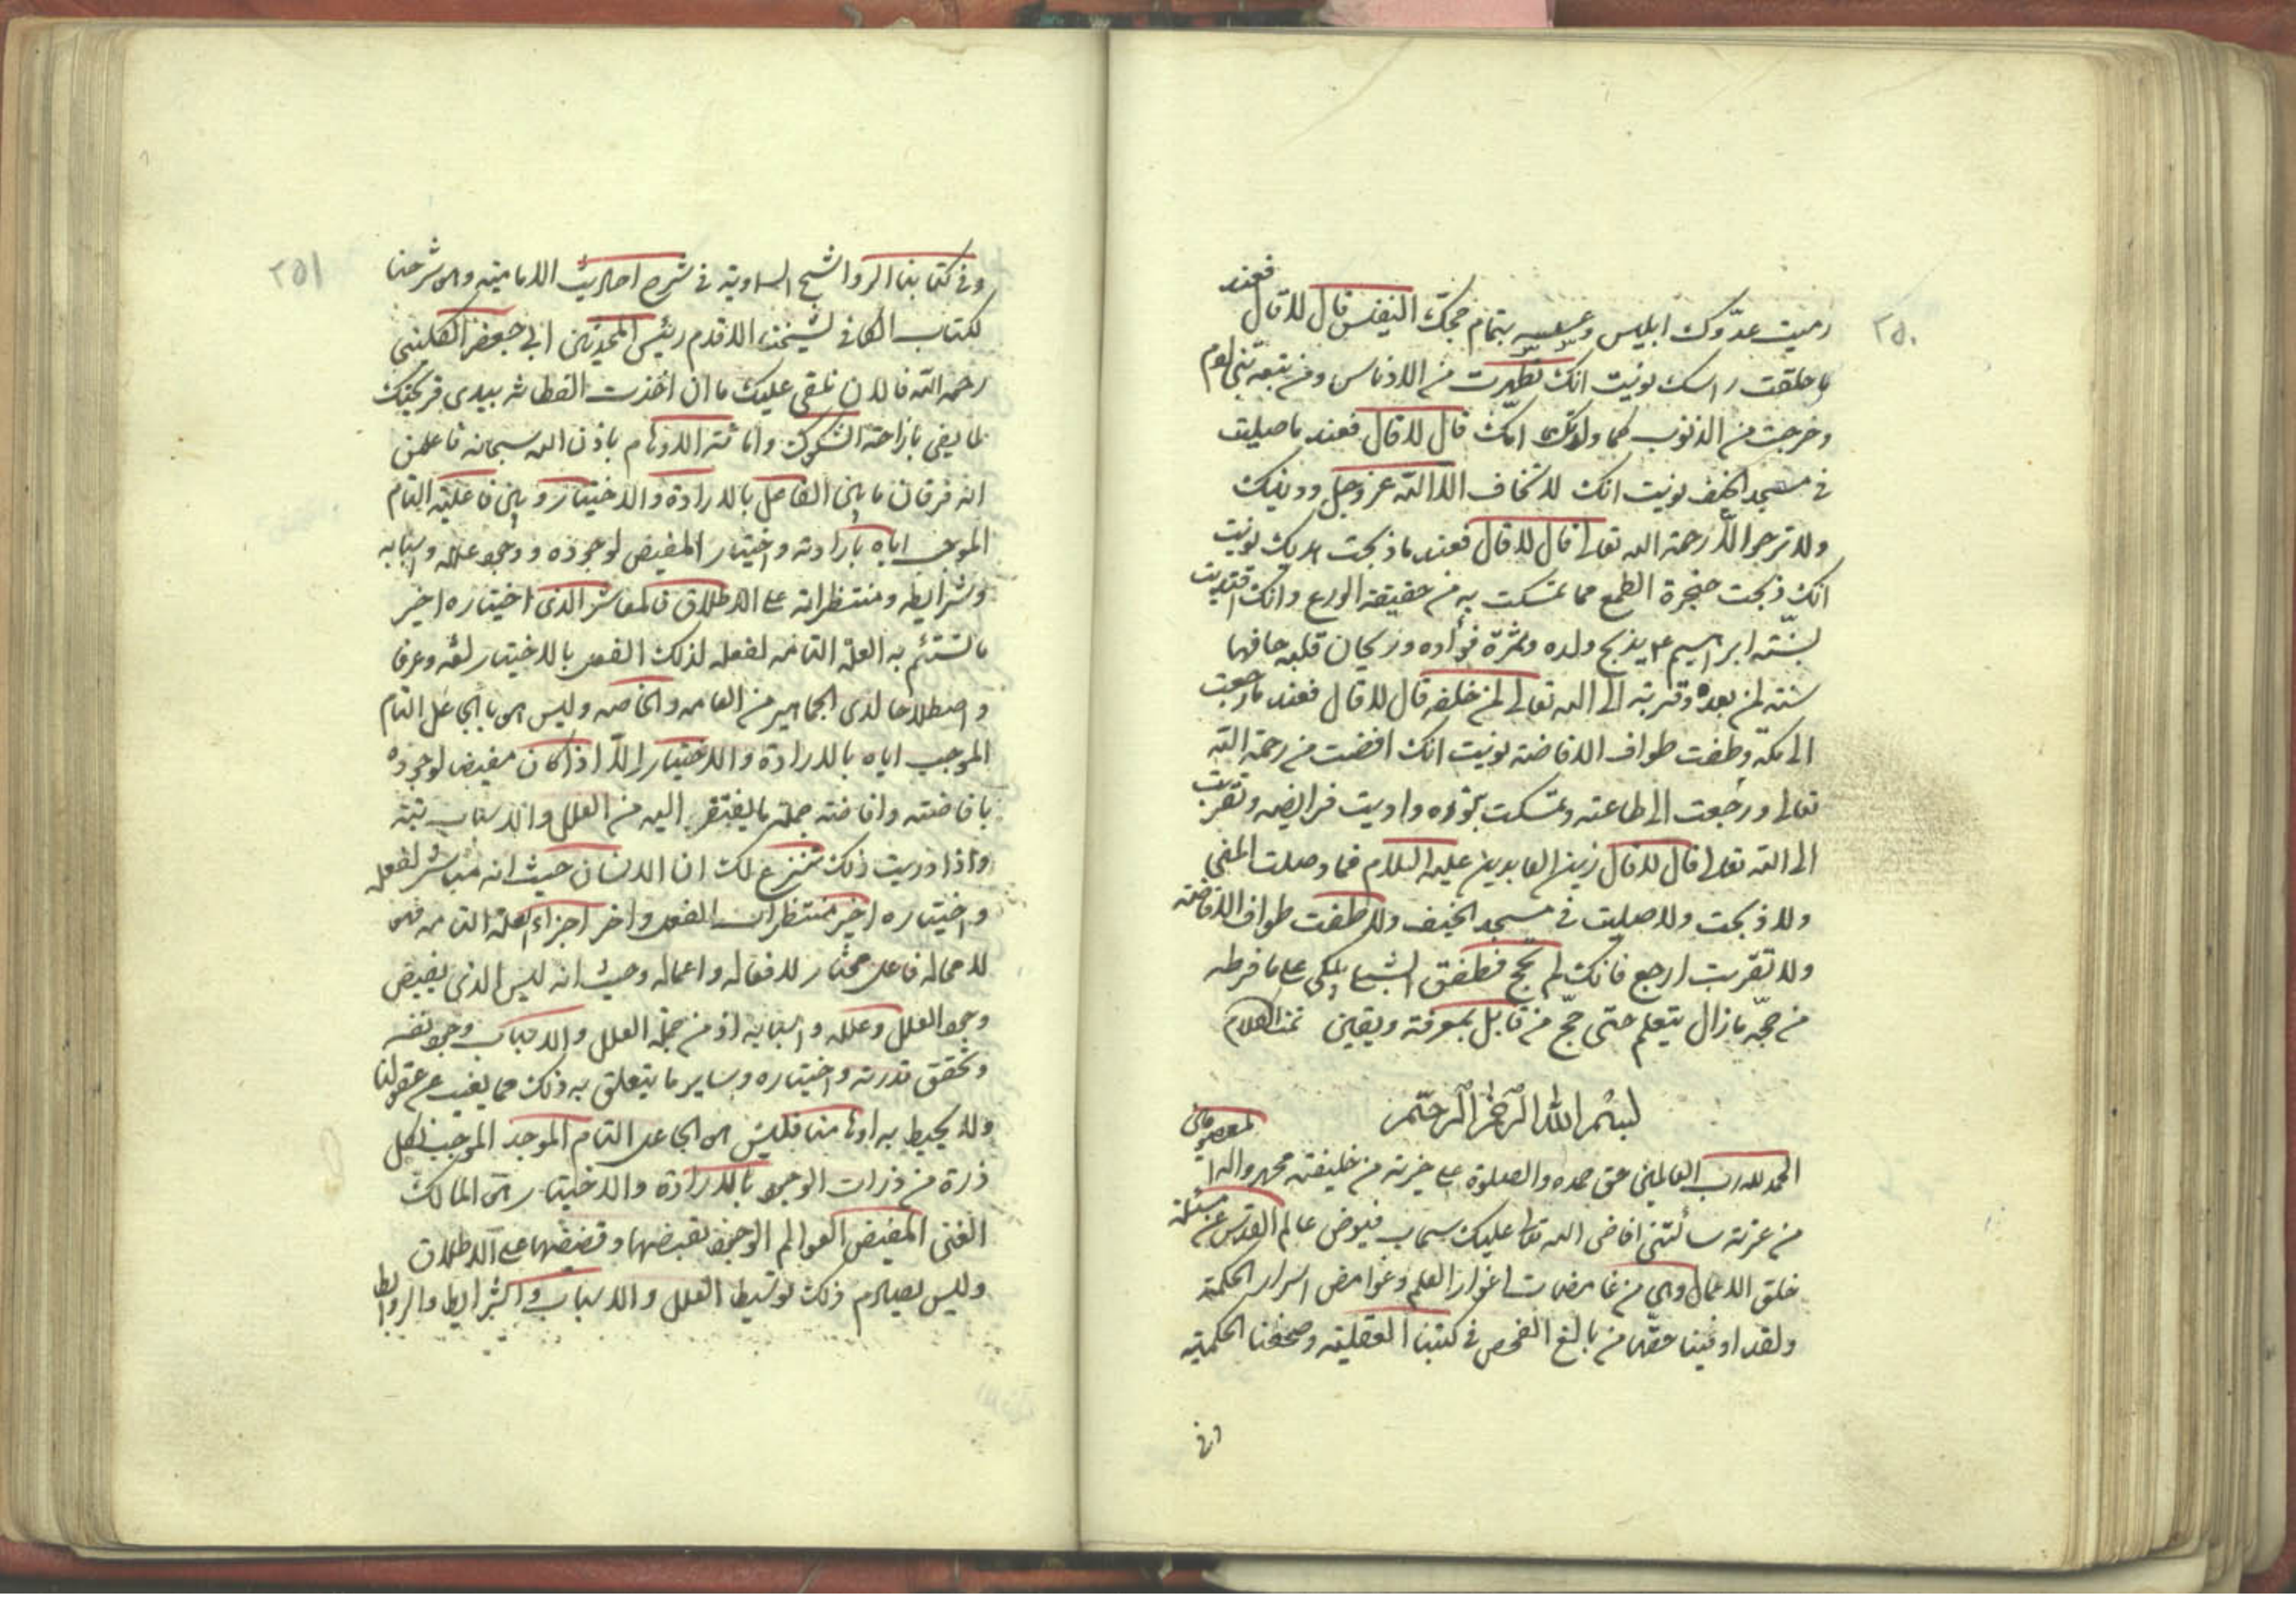 ٢٥٠
رميت عدوك ابليس وعصيته بتمام حجك النفيس قال لا قال فعند
ما حلقت راسك نويت انك تطهرت من الادناس ومن تبعة بني ادم
وخرجت من الذنوب كما ولدتك امك قال لا قال فعند ما صليت
في مسجد الخيف نويت انك لا تخاف الا الله عز وجل وذنبك
ولا ترجو الا رحمة الله تعالى قال لا قال فعند ما ذبحت هديك نويت
انك ذبحت حنجرة الطمع مما تمسكت به من حقيقة الورع وانك اقتديت
بسنة ابراهيم ع بذبح ولده وثمرة فؤاده وريحان قلبه
سنته لمن بعده وقربه الى الله تعالى لمن خلفه قال لا قال فعند ما رجعت
الى مكة وطفت طواف الافاضة نويت انك افضت من رحمة الله
تعالى ورجعت الى طاعته وتمسكت بوده واديت فرايضه وتقربت
الى الله تعالى قال لا قال زين العابدين عليه السلام فما وصلت المنى
ولا ذبحت ولا صليت في مسجد الخيف ولا طفت طواف الافاضة
ولا تقربت ارجع فانك لم تحج فطفق الشبلي يبكي على ما فرطه
من حجه ما زال يتعلم حتى حج من قابل بمعرفة ويقين تمت الكلام
بسم الله الرحمن الرحيم
الحمد لله رب العالمين حق حمده والصلوة على خيرته من خليقته محمد واله المعصومين
من عترته سألتني افاض الله تعالى عليك سحاب فيوض عالم القدس عن مسئلة
خلق الاعمال وهي من غامضات اغوار العلم وغوامض اسرار الحكمة
ولقد اوفينا حقها من بالغ الفحص في كتبنا العقلية وصحفنا الحكمية
وفي
٢٥١
وفي كتابنا الرواشح السماوية في شرح احاديث الامامية وهى شرحنا
لكتاب الكافي لشيخنا الاقدم رئيس المحدثين ابي جعفر الكليني
رحمه الله فالان نلقى عليك ما ان اخذت الفطانة بيدي قريحتك
لما يفي بازاحة الشكوك واماتة الاوهام باذن الله سبحانه فاعلمن
انه فرقان ما بين الفاعل بالارادة والاختيار وبين فاعليته التام
الموجب اياه بارادته واختياره المفيض لوجوده ووجود علله واسبابه
وشرايطه ومنتظراته على الاطلاق فالمباشر الذي اختياره اخير
ما تستتم به العلة التامة لفعله لذلك الفعل بالاختيار لغة وعرفا
واصطلاحا لدى الجماهير من العامه والخاصه وليس هو بالجاعل التام
الموجب اياه بالارادة والاختيار الا اذا كان مفيض لوجوده
بافاضته وافاضة جملة ما يفتقر اليه من العلل والاسباب بتة
واذا دريت ذلك تنزع لك ان الانسان حيث انه مباشر لفعله
واختياره اخير منتظرات الفعل واخر اجزاء العلة التامه فهو
لا محاله فاعل مختار لافعاله واعماله وحيث انه ليس الذي يفيض
وجود الفعل وعلله واسبابه اذ من جملة العلل والاسباب وجود نفسه
وتحقق قدرته واختياره وساير ما يتعلق به ذلك مما يغيب عن عقولنا
ولا يحيط به اوهامنا فليس هو الجاعل التام الموجد الموجب لكل
ذرة من ذرات الوجود بالارادة والاختيار هو المالك
الغني المفيض العوالم الوجود بقضها وقضيضها على الاطلاق
وليس يصادم ذلك توسيط العلل والاسباب والشرايط والروابط